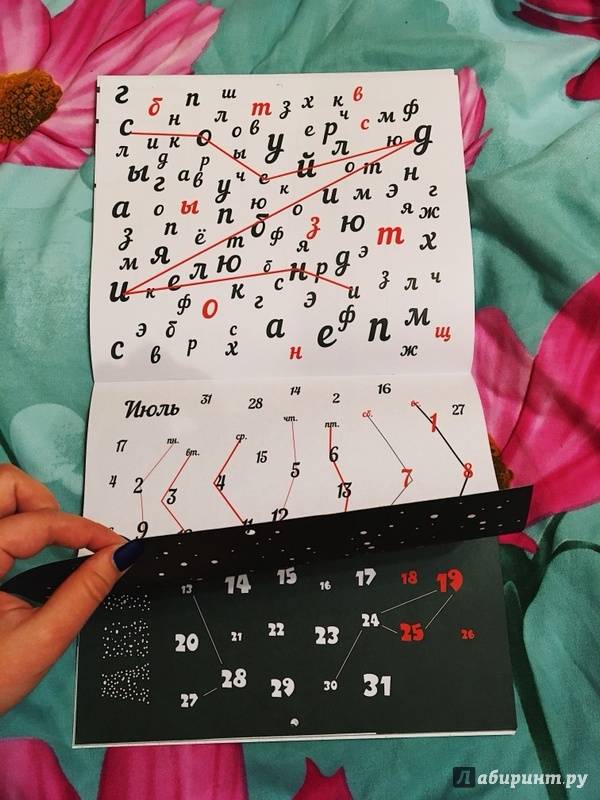 г б п ш т з х к в
с н л о в е р ч с м ф
л и к о р ы у й л ю д
ы г а в у ч е к о т н
а о ы п ю о и м э г
з п ё т б ф я з ю т я ж х
м я
и к е л ю б с н р д э з л ч
ф о к г э и
с э в б р с х а н е ф п м ж щ
Июль 31 28 14 2 16 вс. 27
17 пн. вт. ср. чт. пт. сб. 1
4 2 3 4 15 5 6 7 8
9 12 13
13 14 15 16 17 18 19
20 21 22 23 24 25 26
27 28 29 30 31
Лабиринт.ру